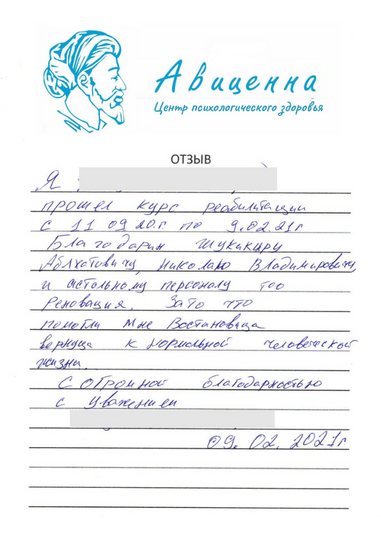 Авиценна
Центр психологического здоровья
ОТЗЫВ
Я
прошел курс реабилитации
с 11 09 20г по 9.02.21г
Благодарин Шукикиру
Аблхатовичу, Николаю Владимировичу,
и остольному персоналу тоо
Реновация. Зато что
помогли мне Востановица
вернуца к нормальной человеческой
жизни.
С огромной благодарностью
с уважением
09. 02. 2021г